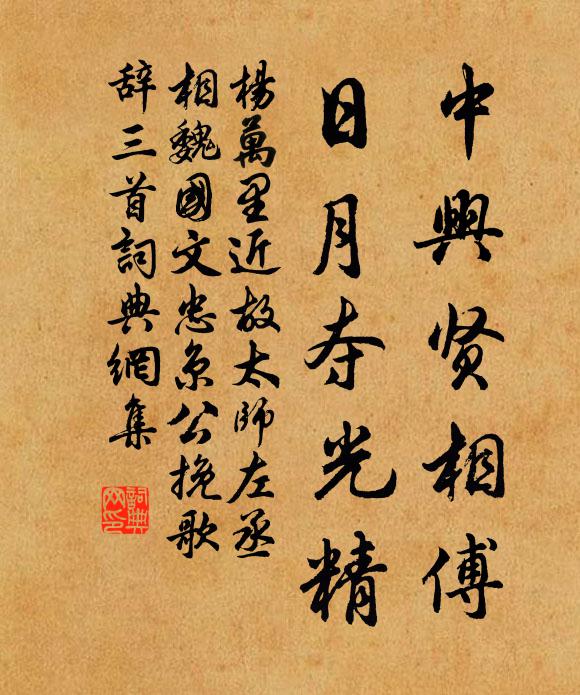 中興贤相傅
日月夺光精
楊萬里近故太師左丞
相魏國文忠京公挽歌
辞三首詞典網集
詞典
网印